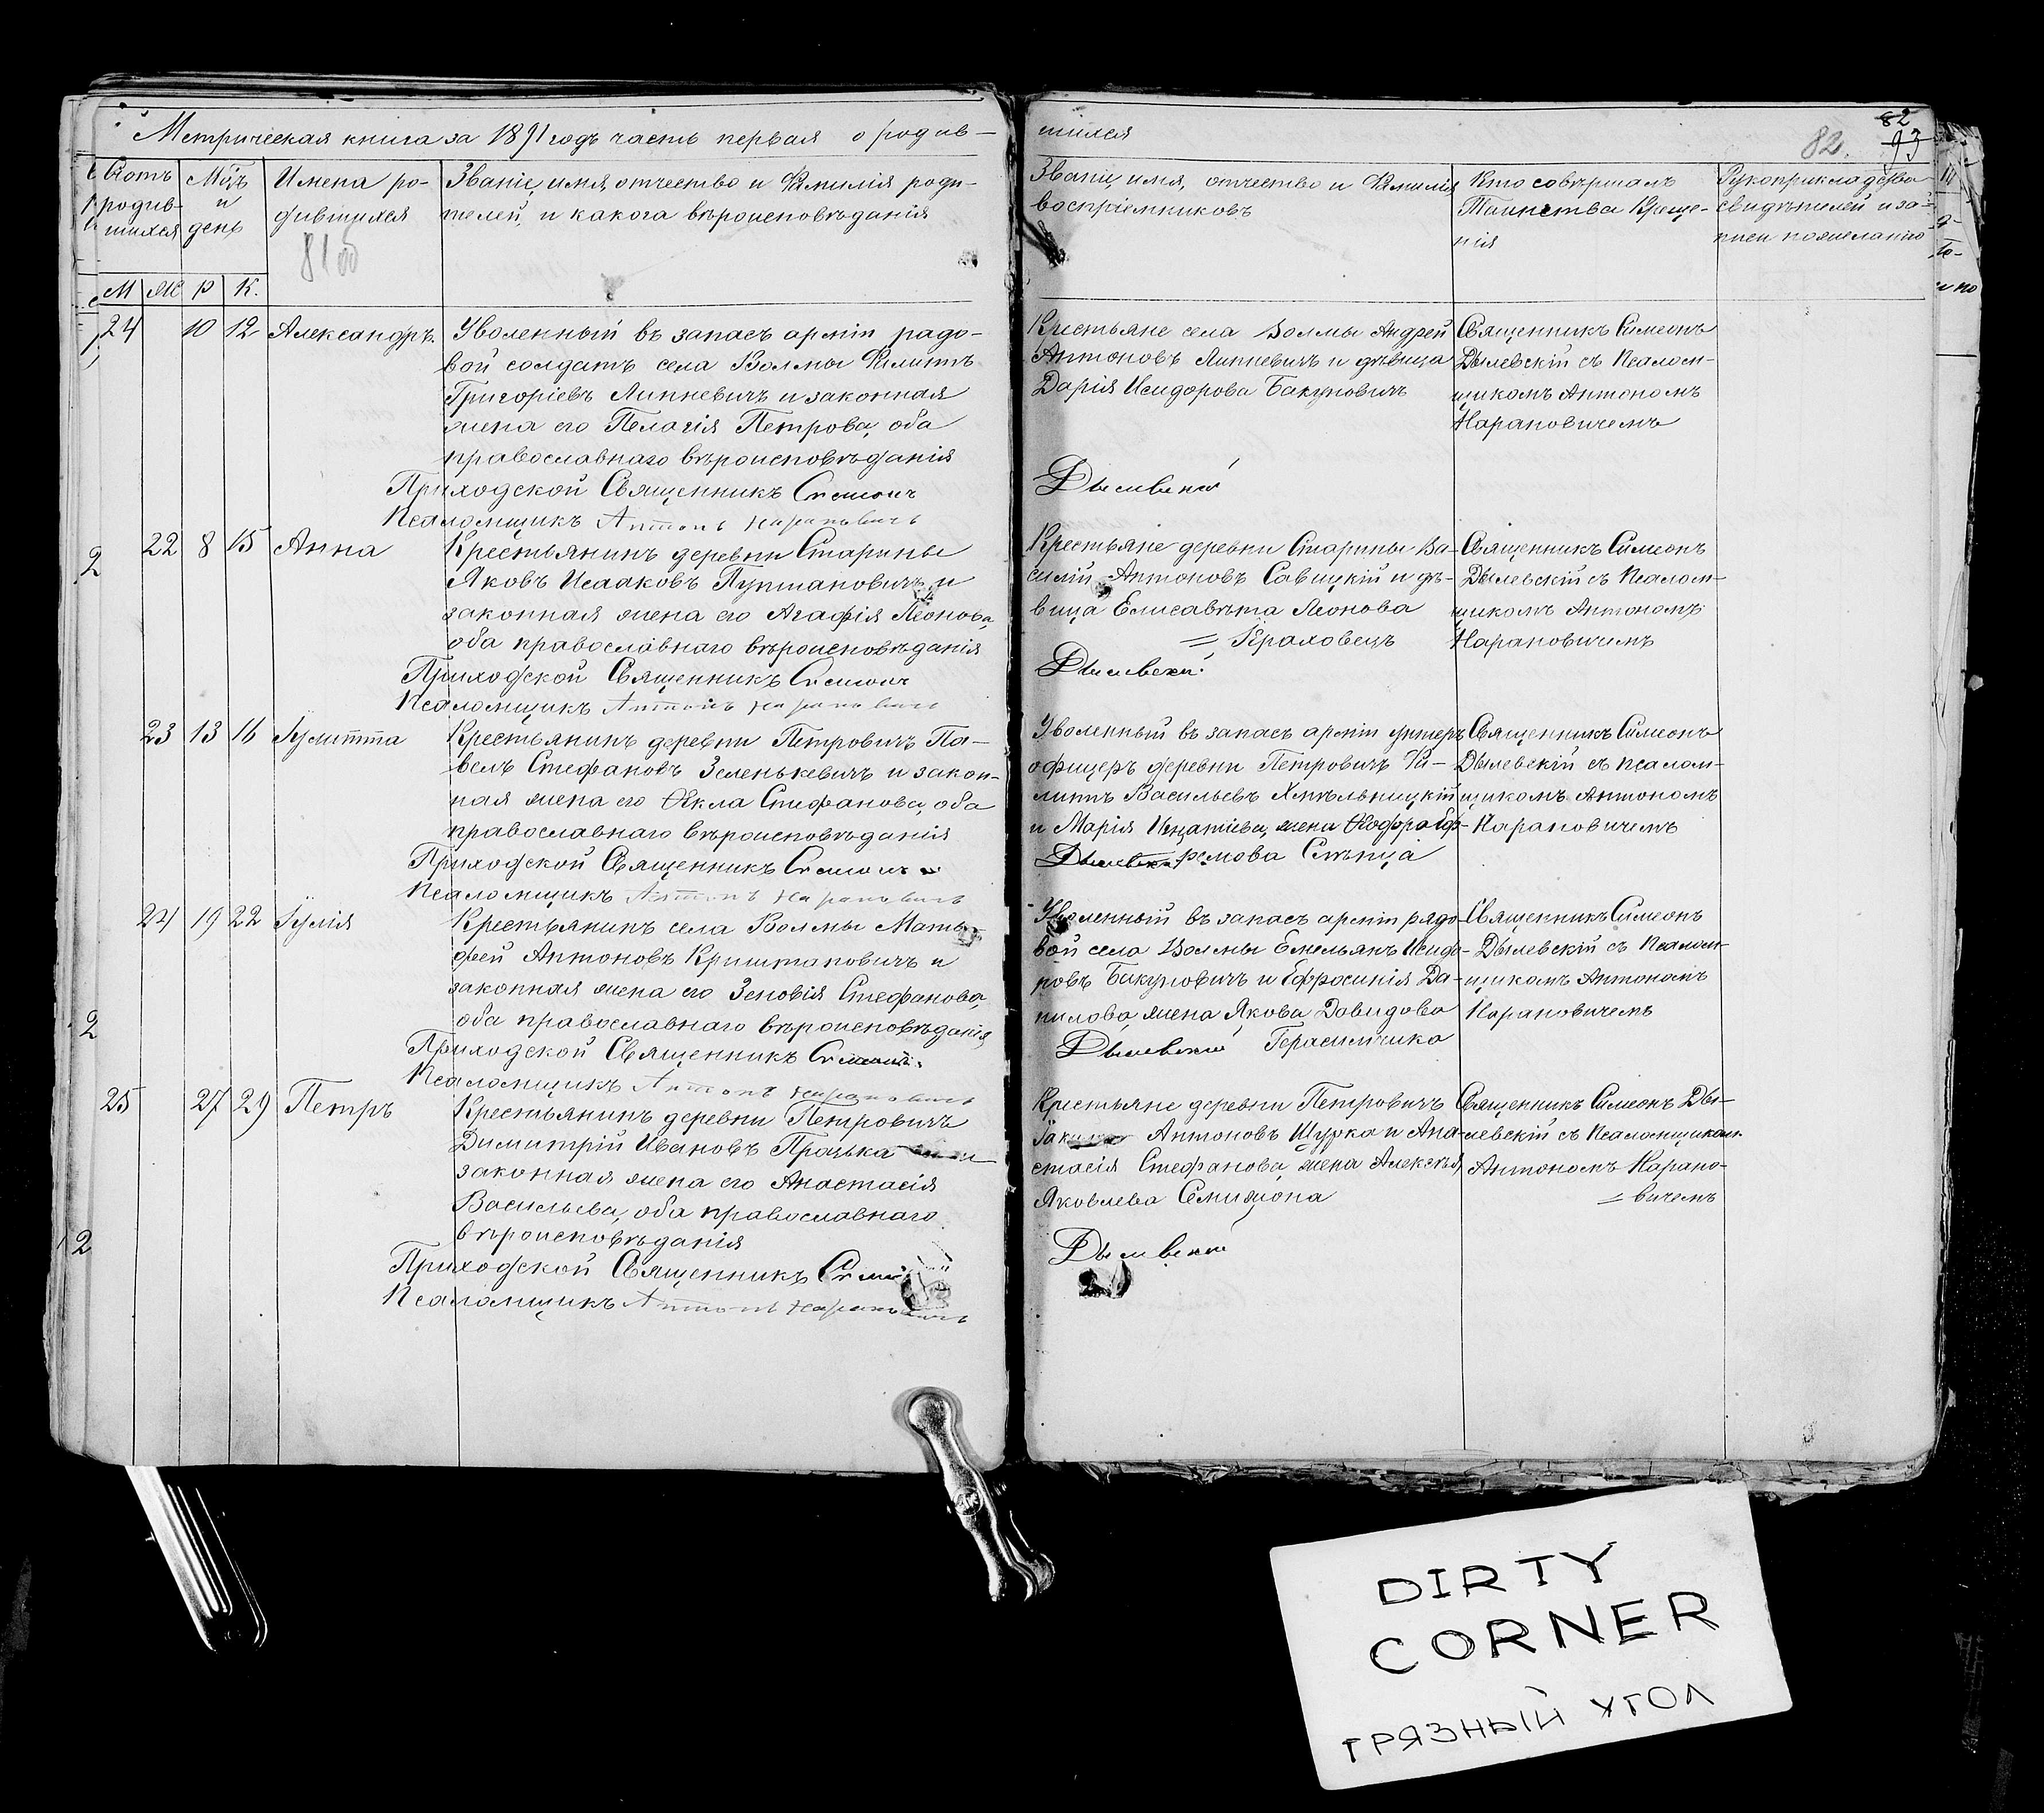 Метрическая книга за 1891 годъ часть первая о родив-
шихся
82
82.
93
Счотъ родив-шихся
Мѣц̃ъ и день
Имена ро-
дившихся
81 об
Званіе, имя, отчество и Фамилія роди-
телей, и какога вѣроисповѣданія
Званіе, имя, отчество и Фамилія
воспріемниковъ
Кто совершалъ
Таинства Креще-
нія
Рукоприкладство
свидѣтелей и за-
писи по желанію
М Ж Р К.
24 10 12 Александръ
Уволенный въ запасъ арміи рядо-
вой солдатъ села Волмы Филиппъ
Григоріевъ Липневичъ и законная
жена его Пелагія Петрова, оба
православнаго вѣроисповѣданія
Приходской Священникъ Симеонъ
Псаломщикъ Антонъ Нарановичъ
Крестьяне села Волмы Андрей
Антоновъ Липневичъ и дѣвица
Дарія Исидорова Бакуновичъ
Дылевскій
Священникъ Симеонъ
Дылевскій съ Псалом-
щикомъ Антономъ
Нарановичемъ
22 8 15 Анна
Крестьянинъ деревни Старины
Яковъ Исааковъ и
законная жена его Агафія Леонова,
оба православнаго вѣроисповѣданія
Приходской Священникъ Симеонъ
Псаломщикъ Антонъ Нарановичъ
Крестьяне деревни Старины Ва-
силій Антоновъ Савицкій и дѣ-
вица Елисавѣта Леонова
= Краховецъ
Дылевскій
Священникъ Симеонъ
Дылевскій съ Псалом-
щикомъ Антономъ
Нарановичемъ
23 13 16 Іулитта
Крестьянинъ деревни Петровичъ Па-
велъ Стефановъ Зеленькевичъ и закон-
ная жена его Ѳекла Стефанова, оба
православнаго вѣроисповѣданія
Приходской Священникъ Симеонъ
Псаломщикъ Антонъ Нарановичъ
Уволенный въ запасъ арміи унтеръ
офицеръ деревни Петровичъ Фи-
липпъ Васильевъ Хмѣльницкій
и Марія Игнатіева, жена Ѳодора Еф-
Дылевскій ремова Слѣпца
Священникъ Симеонъ
Дылевскій съ Псалом-
щикомъ Антономъ
Нарановичемъ
24 19 22 Іулія
Крестьянинъ села Волмы Матѳ-
фей Антоновъ Криштаповичъ и
законная жена его Зеновія Стефанова,
оба православнаго вѣроисповѣданія
Приходской Священникъ Симеонъ
Псаломщикъ Антонъ Нарановичъ
Уволенный въ запасъ арміи рядо-
вой села Волмы Емельянъ Исидо-
ровъ Бакуновичъ и Ефросинія Да-
нилова, жена Якова Давидова
Дылевскій Герасимчика
Священникъ Симеонъ
Дылевскій съ Псалом-
щикомъ Антономъ
Нарановичемъ
25 27 29 Петръ
Крестьянинъ деревни Петровичъ
Димитрій Ивановъ
законная жена его Анастасія
Васильева, оба православнаго
вѣроисповѣданія
Приходской Священникъ
Псаломщикъ Антонъ Нарановичъ
Крестьяне деревни Петровичъ
Антоновъ Щурка и Ана-
стасія Стефанова, жена Алексѣя
Яковлева
Дылевскій
Священникъ Симеонъ Ды-
левскій съ Псаломщикомъ
Антономъ Нарано-
= вичемъ
2
2
2
DIRTY
CORNER
ГРЯЗНЫЙ УГОЛ